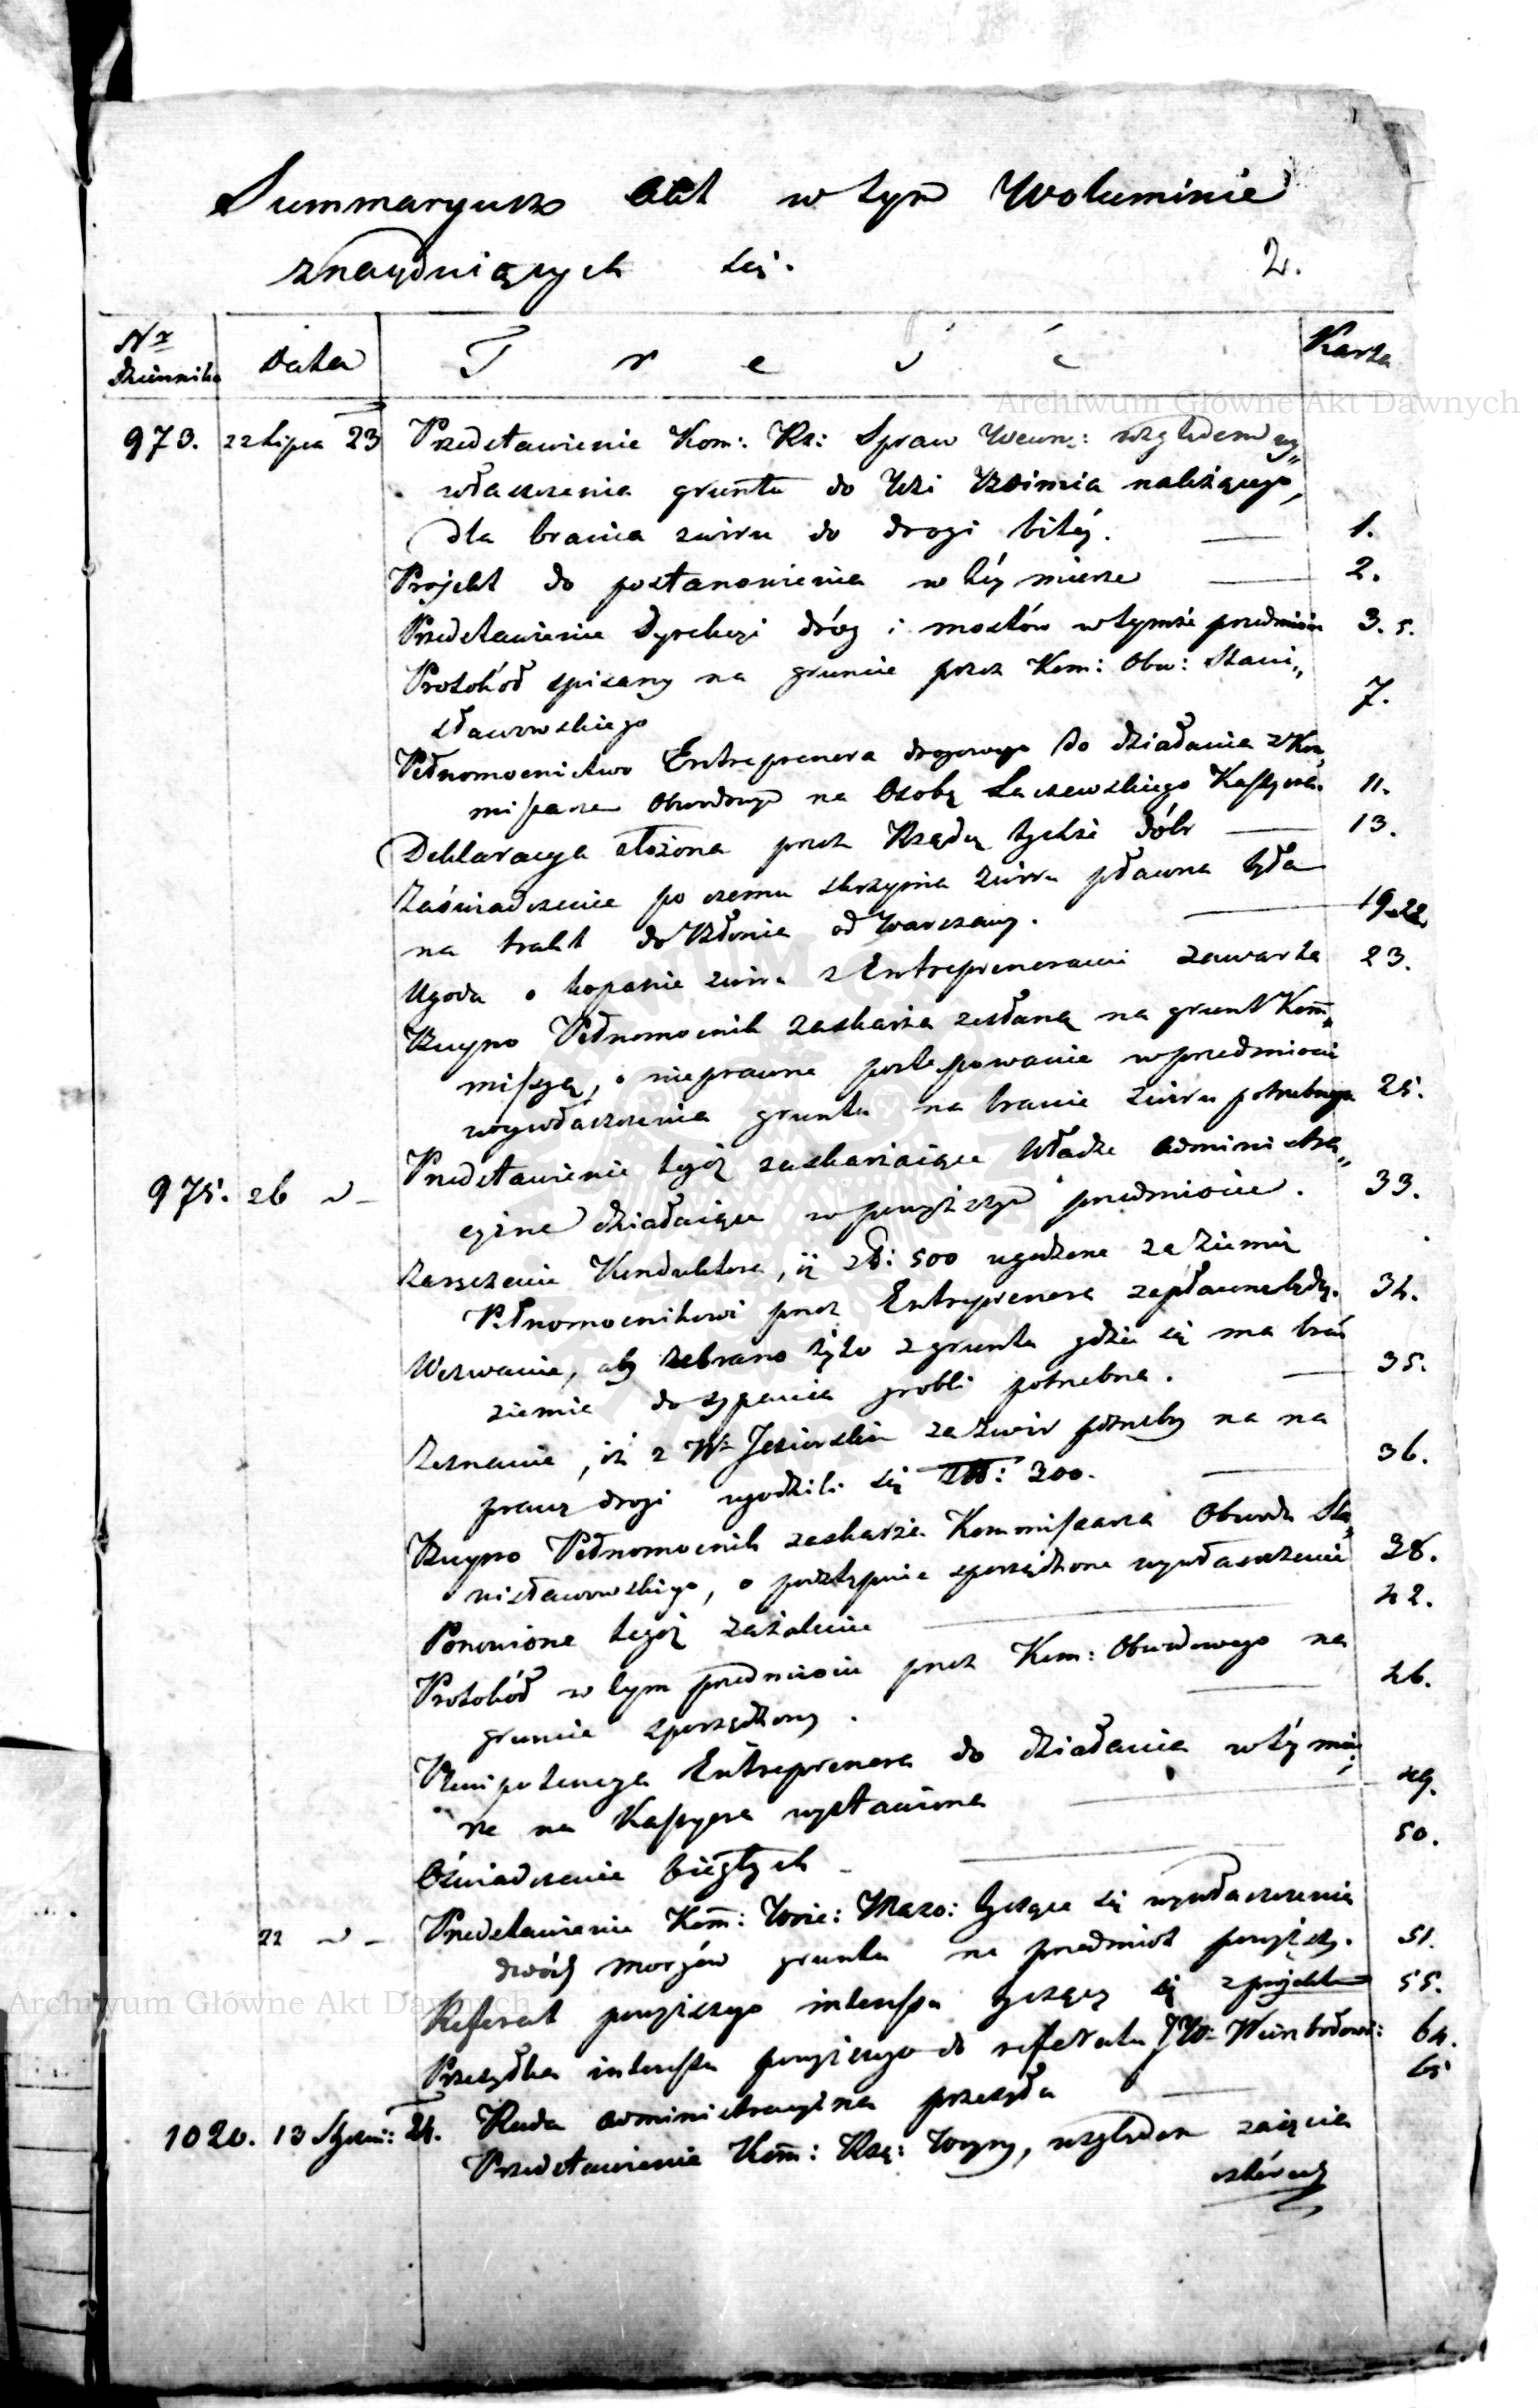 Summaryusz Akt w tym Woluminie
znayduiących się.
2.
Nr Dziennika Data Treść Karta
Archiwum Główne Akt Dawnych
973. 22 Lipca 23 Przedstawienie Kom: Rz: Spraw Wewn: względem wy„
właszczenia gruntu do Wsi należącego,
dla brania żwiru do drogi bitéj. 1.
Projekt do postanowienia w téy mierze 2.
Przedstawienie Dyrekcyi dróg i mostów w tymże przedmiocie 3. 5.
Protokół spisany na gruncie przez Kom: Obw: Stani„
sławowskiego 7.
Pełnomocnictwo Entreprenera drogowego do działania z Kom„
missarzem Obwodowym na Osobę Kassyera. 11.
Deklaracya złożona przez Rządcę tychże dóbr 13.
Zaświadczenie po czemu skrzynia żwiru płacona była
na trakt do Błonia od Warszawy. 19-22
Ugoda o kopanie żwiru z Entreprenerami zawarta 23.
Pełnomocnik zaskarża zesłaną na grunt Kom„
missyą, o nieprawne postępowanie w przedmiocie
wywłaszczenia gruntu na branie żwiru potrzebnego 25.
975. 26 Przedstawienie tegóż zaskarżaiące Władze administra„
cyine działaiące w powyższym przedmiocie. 33.
Zaręczenie Konduktora, iż zł: 500 ugodzone za Ziemię
Pełnomocnikowi przez Entreprenera zapłacone będą. 34.
Wezwanie, aby zebrano żyto z gruntu gdzie się ma brać
ziemia do sypania grobli potrzebna. 35.
Zeznanie, iż z W. Jezierskim za żwir potrzebny na na
prawę drogi ugodzili się Zł: 300. 36.
Pełnomocnik zaskarża Kommissarza Obwodu Sta„
nisławowskiego, o podstępnie sporządzone wywłaszczenie 38.
Ponowione tegóż zażalenie 42.
Protokół w tym przedmiocie przez Kom: Obwodowego na
gruncie sporządzony. 46.
Plenipotencya Entreprenera do działania w téy mie„
rze na Kassyera wystawiona 49.
Oświadczenie biegłych 50.
22 Przedstawienie Kom: Woie: Mazo: tyczące się wywłaszczenia
dwóch morgów gruntu na przedmiot powyższy. 51.
Archiwum Główne Akt Dawnych
Referat powyższego interessu tyczący się z projektem 55.
Przesyłka interessu powyższego do referatu JW. 64.
1020. 13 Stycz: 24. Rada administracyina przesyła 65
Przedstawienie Kom: Rzą: Woyny, względem zaięcia